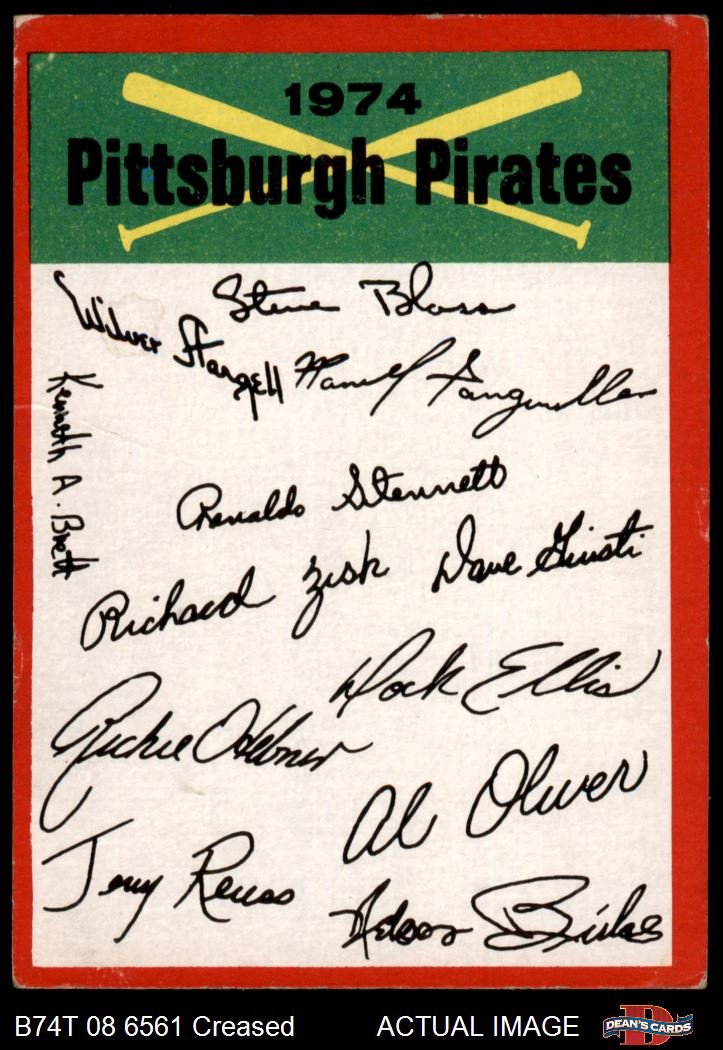 1974
Pittsburgh Pirates
Steve Blass
Wilver Stargell
Manuel Sanguillen
Kenneth A. Brett
Renaldo Stennett
Richard Zisk
Dave Giusti
Dock Ellis
Richie Hebner
Al Oliver
Jerry Reuss
Nelson Briles
B74T 08 6561 Creased
ACTUAL IMAGE
D
DEAN'S CARDS